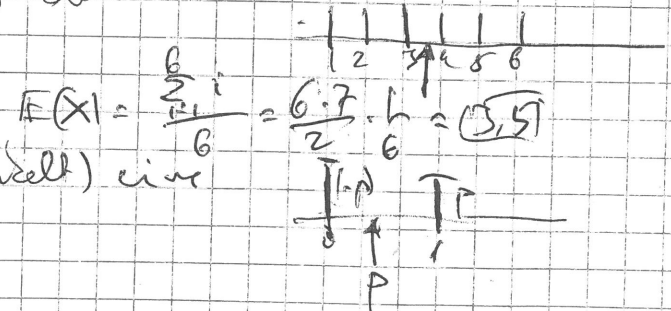 1 2 3 4 5 6
E(X) = \frac{\sum_{i=1}^{6} i}{6} = \frac{6 \cdot 7}{2} \cdot \frac{1}{6} = 3,5
eine
1-p p
0 1
p